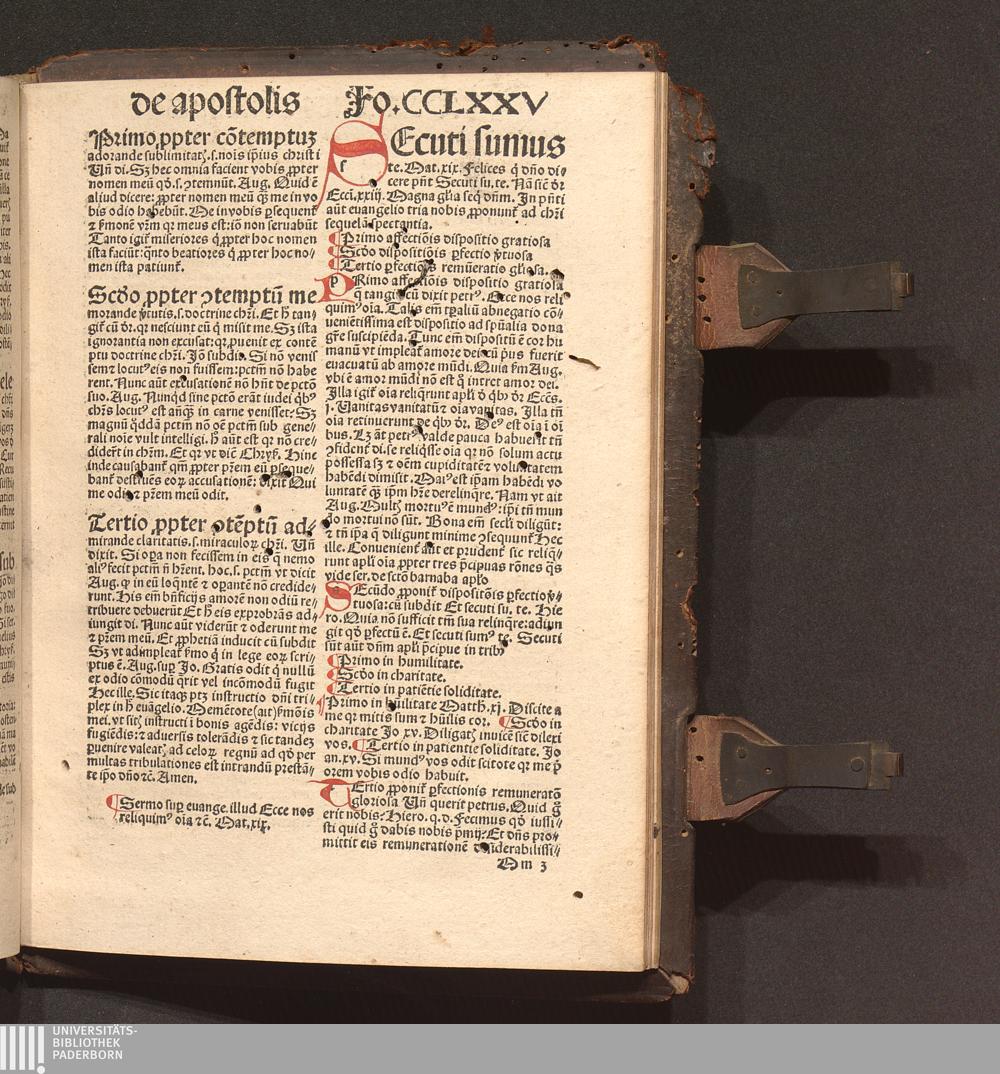 de apostolis Fo.CCLXXV
Primo ꝓpter cōtemptuꝫ
adorande sublimitatꝭ.s.nois ip̄ius christi
Vn̄ di. Sꝫ hec omnia facient vobis ꝓpter
nomen meū qd̄.s.ↄtemnūt. Aug. Quid ē
aliud dicere: ꝓpter nomen meū qꝫ me in vo
bis odio habebūt. Me in vobis ꝑsequent̄
⁊ ẜmonē vr̄m qꝛ meus est: iō non seruabūt
Tanto igit̄ miseriores q̇ ꝓpter hoc nomen
ista faciūt: qn̄to beatiores q̇ ꝓpter hoc no⸗
men ista patiunt̄.
Scd̄o ꝓpter ↄtemptū me
morande v̓tutis.s.doctrine chr̄i. Et h̄ tan⸗
git̄ cū dr̄. qꝛ nesciunt eū q̇ misit me. Sꝫ ista
ignorantia non excusat: qꝛ ꝓuenit ex contē
ptu doctrine chr̄i. Jō subdit. Si nō venis
sem ⁊ locutꝰ eis non fuissem: pctm̄ nō habe
rent. Nunc aūt excusationē nō hn̄t de pctō
suo. Aug. Nunqd̄ sine pctō erāt iudei qb̓ꝰ
chr̄s locutꝰ est anq̄ꝫ in carne venisset: Sꝫ
magnū qd̄dā pctm̄ nō oē pctm̄ sub gene⸗
rali noīe vult intelligi. h̄ aūt est qꝛ nō cre⸗
didert̄ in chr̄m. Et qꝛ vt dic̄ Chryẜ. Hinc
inde causabant̄ qm̄ ꝓpter pr̄em eū ꝑseque⸗
bant̄ destrues eoꝝ accusationē: dixit Qui
me odit ⁊ pr̄em meū odit.
Tertio ꝓpter ↄtēptū ad⸗
mirande claritatis.s.miraculoꝝ chr̄i. Vn̄
dixit. Si oꝑa non fecissem in eis q̄ nemo
aliꝰ fecit pctm̄ n̄ hr̄ent. hoc.s. pctm̄ vt dicit
Aug. ꝙ in eū loq̄ntē ⁊ oꝑantē nō credide⸗
runt. His em̄ bn̄ficijs amorē non odiū re⸗
tribuere debuerūt Et h̄ eis exprobrās ad⸗
iungit di. Nunc aūt viderūt ⁊ oderunt me
⁊ pr̄em meū. Et ꝓphetiā inducit cū subdit
Sꝫ vt adimpleat̄ ẜmo q̇ in lege eoꝝ scri⸗
ptus ē. Aug. sup̄ Jo. Gratis odit q̇ nullū
ex odio cōmodū q̄rit vel incōmodū fugit
Hec ille. Sic itaqꝫ ptꝫ instructio dn̄i tri⸗
plex in h̄ euāgelio. Memētote (ait) ẜmōis
mei. vt sitꝭ instructi i bonis agēdis: vicijs
fugiēdis: ⁊ aduersis tolerādis ⁊ sic tandeꝫ
ꝑuenire valeatꝭ ad celoꝝ regnū ad qd̄ per
multas tribulationes est intrandū prestā⸗
te ip̄o dn̄o ⁊c. Amen.
Sermo sup̄ euange. illud Ecce nos
reliquimꝰ oīa ⁊c. Mat. xix.
SEcuti sumus
te. Mat. xix. Felices q̇ dn̄o di⸗
cere pn̄t Secuti su. te. Nā sic̄ dr̄
Ecci. xxiij. Magna gl̄ia seq̄ dn̄m. In pn̄ti
aūt euangelio tria nobis ꝓponunt̄ ad chr̄i
sequelā spectantia.
Primo affectiōis dispositio gratiosa
Scd̄o dispositiōis ꝑfectio v̓tuosa
Tertio ꝑfectiōis remūeratio gl̄iosa.
PRimo affectiōis dispositio gratiosa
q̄ tangit̄ cū dixit petrꝰ. Ecce nos reli
quimꝰ oīa. Talis em̄ tꝑaliū abnegatio cō⸗
uenietissima est dispositio ad spūalia dona
gr̄e suscipiēda. Tunc em̄ dispositū ē cor hu
manū vt impleat̄ amore dei cū pͥus fuerit
euacuatū ab amore mūdi. Quia ẜm Aug.
vbi ē amor mūdi nō est q̇ intret amor dei.
Illa igit̄ oīa reliqr̄unt apl̓i d̄ qb̓ꝰ dr̄ Eccs̄.
j. Vanitas vanitatū ⁊ oīa vanitas. Illa tn̄
oīa retinuerunt de qb̓ꝰ dr̄. Deꝰ est oīa i oī
bus. Lꝫ āt petrꝰ valde pauca habuerit tn̄
ↄfident̄ di. se reliq̇sse oīa qꝛ nō solum actu
possessa sꝫ ⁊ oēm cupiditatē ⁊ voluntatem
habēdi dimisit. Maiꝰ est ip̄am habēdi vo
luntatē qꝫ ip̄m hr̄e derelinq̄re. Nam vt ait
Aug. Multꝭ mortuꝰ ē mundꝰ: ip̄i tn̄ mun
do mortui nō sūt. Bona em̄ secl̓i diligūt:
⁊ tn̄ ip̄a q̇ diligunt minime ↄsequunt̄ Hec
ille. Conuenient̄ aūt et prudent̄ sic reliq̄⸗
runt apl̓i oīa ꝓpter tres p̄cipuas rōnes qs̄
vide ser. de sctō barnaba apl̓o
SEcūdo ꝓponit̄ dispositōis ꝑfectio v̓⸗
tuosa: cū subdit Et secuti su. te. Hie
ro. Quia nō sufficit tm̄ sua relinq̄re: adiun
git qd̄ ꝑfectū ē. Et secuti sumꝰ te. Secuti
sūt aūt dn̄m apl̓i p̄cipue in tribꝰ
Primo in humilitate.
Scd̄o in charitate.
Tertio in patiētie soliditate.
Primo in huīlitate Matth. xj. Discite a
me qꝛ mitis sum ⁊ hūīlis cor. Scd̄o in
charitate Jo xv. Diligatꝭ inuicē sic̄ dilexi
vos. Tertio in patientie soliditate. Jo
an. xv. Si mundꝰ vos odit scitote qꝛ me pͥ
orem vobis odio habuit.
TErtio ꝓponit̄ ꝑfectionis remuneratō
gloriosa Vn̄ querit petrus. Quid gͦ
erit nobis: Hiero. q. d. Fecimus qd̄ iussi⸗
sti quid gͦ dabis nobis p̄mij: Et dn̄s pro⸗
mittit eis remunerationē desiderabilissi⸗
Mm 3
UNIVERSITÄTS-
BIBLIOTHEK
PADERBORN